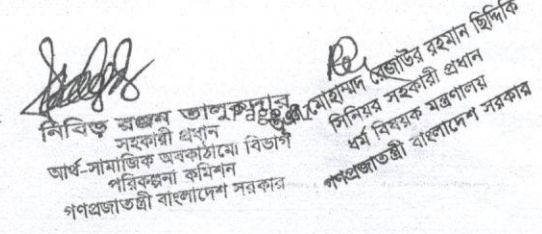 নিবিড় রঞ্জন তালুকদার
সহকারী প্রধান
আর্থ-সামাজিক অবকাঠামো বিভাগ
পরিকল্পনা কমিশন
গণপ্রজাতন্ত্রী বাংলাদেশ সরকার
Page
মোহাম্মাদ রেজাউর রহমান ছিদ্দিকি
সিনিয়র সহকারী প্রধান
ধর্ম বিষয়ক মন্ত্রণালয়
গণপ্রজাতন্ত্রী বাংলাদেশ সরকার